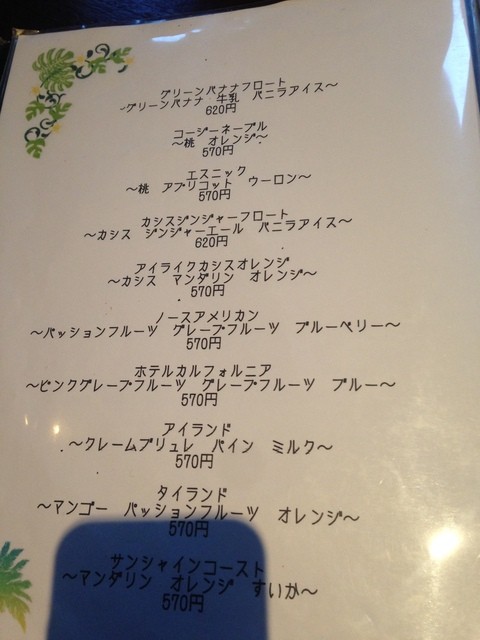 グリーンバナナフロート
~グリーンバナナ 牛乳 バニラアイス~
620円
コージーネーブル
~桃 オレンジ~
570円
エスニック
~桃 アプリコット ウーロン~
570円
カシスジンジャーフロート
~カシス ジンジャーエール バニラアイス~
620円
アイライクカシスオレンジ
~カシス マンダリン オレンジ~
570円
ノースアメリカン
~パッションフルーツ グレープフルーツ ブルーベリー~
570円
ホテルカルフォルニア
~ピンクグレープフルーツ グレープフルーツ ブルー~
570円
アイランド
~クレームブリュレ パイン ミルク~
570円
タイランド
~マンゴー パッションフルーツ オレンジ~
570円
サンシャインコースト
~マンダリン オレンジ すいか~
570円